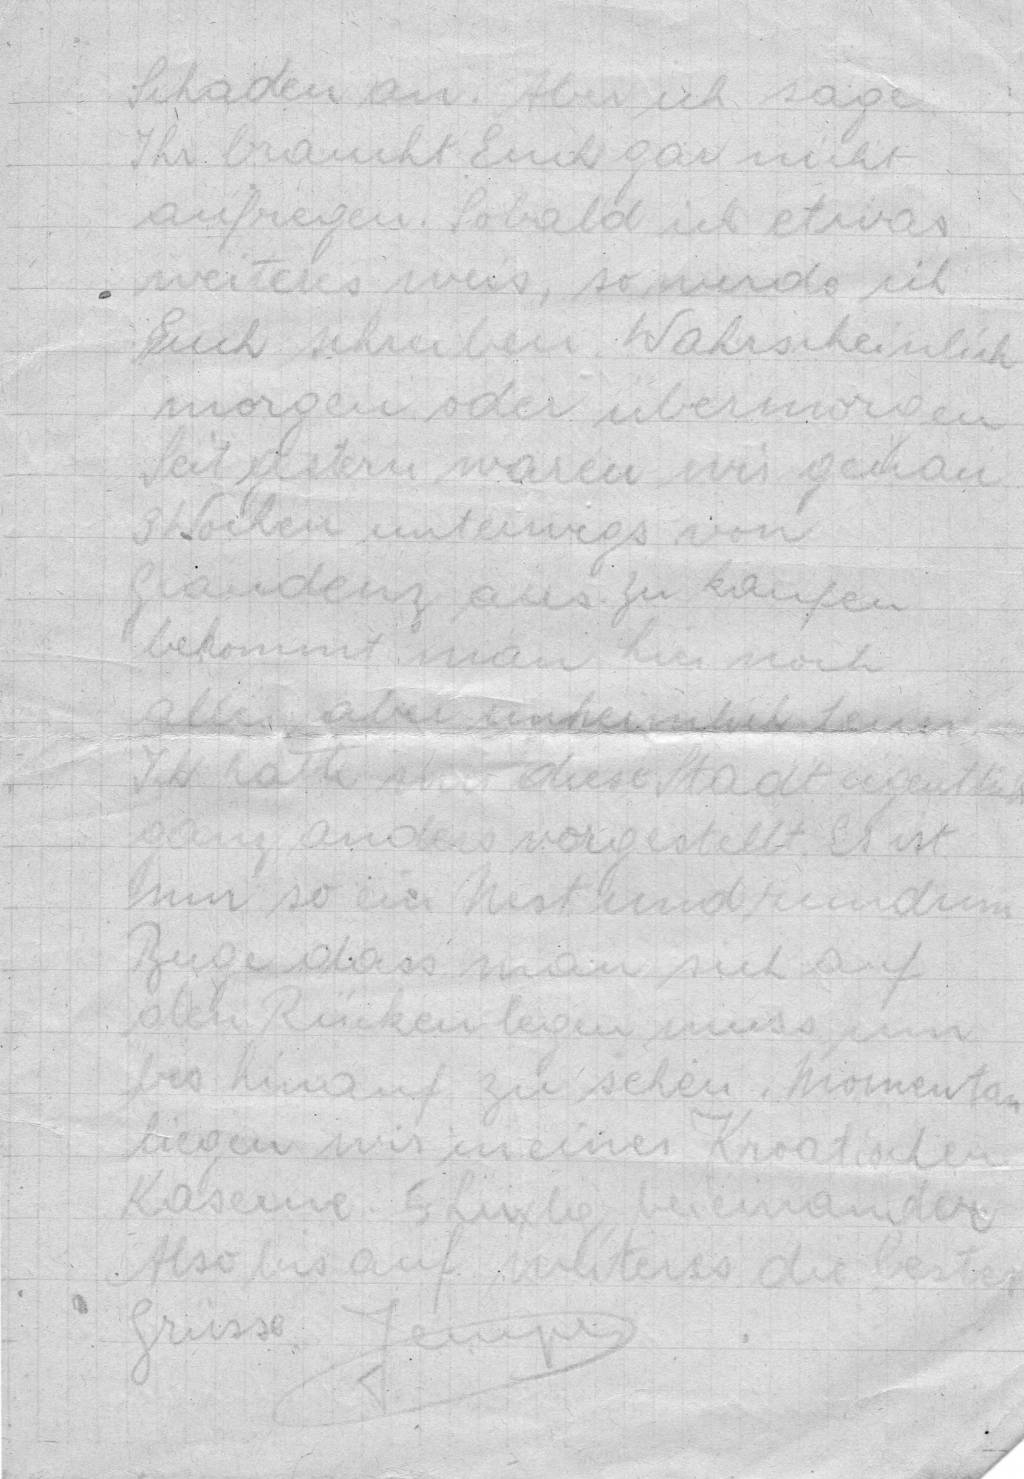 Schaden an. Aber ich sage
Ihr braucht Euch gar nicht
aufregen. Sobald ich etwas
weiteres weis, so werde ich
Euch schreiben. Wahrscheinlich
morgen oder übermorgen
Seit gestern waren wir genau
3 Wochen unterwegs von
Graudenz aus. Zu kaufen
bekommt man hier noch
alles, aber unheimlich teuer
Ich hatte mir diese Stadt eigentlich
ganz anders vorgestellt. Es ist
nur so ein Nest und rundum
Berge dass man sich auf
den Rücken legen muss um
bis hinauf zu sehen. Momentan
liegen wir in einer Kroatischen
Kaserne. 5 beieinander
Also bis auf weiteres die besten
Grüsse